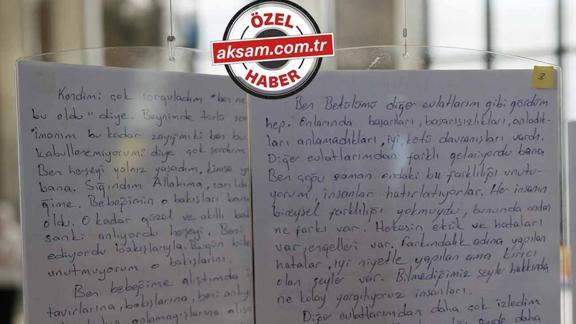 ÖZEL
aksam.com.tr
HABER
Kendimi çok sorguladım "ben ne
bu oldu" diye. Beynimde
imanım bu kadar zayıfmıki ben bu
kabullenemiyorum diye çok sordum
Ben herşeyi yalnız yaşadım, kimse
bana. Sığındım Allahıma, sarıldı
ğime. Bebeğimin o bakışları bana
oldu. O kadar güzel ve akıllı
sanki anlıyordu herşeyi. Beni
ediyordu bakışlarıyla. Bugün bile
unutmuyorum o bakışlarını.
Ben bebeğime alıştımda
tavırlarına, bakışlarına, beni
anlamayışlarına
3
Ben Betülümü diğer evlatlarım gibi gördüm
hep. Onlarında başarıları, başarısızlıkları, anladık-
ları anlamadıkları, iyi kötü davranışları vardı.
Diğer evlatlarımdan farklı gelmiyordu bana
Ben çoğu zaman ondaki bu farklılığı unutu-
yorum, insanlar hatırlatıyorlar. Her insanın
bireysel farklılığı yokmuydu, bununda onlardan
ne farkı var. Herkesin eksik ve hataları
var, engelleri var. Farkındalık adına yapılan
hatalar, iyi niyetle yapılan ama kırıcı
olan şeyler var. Bilmediğimiz şeyler hakkında
ne kolay yargılıyoruz insanları.
Diğer evlatlarımdan daha çok izledim
daha